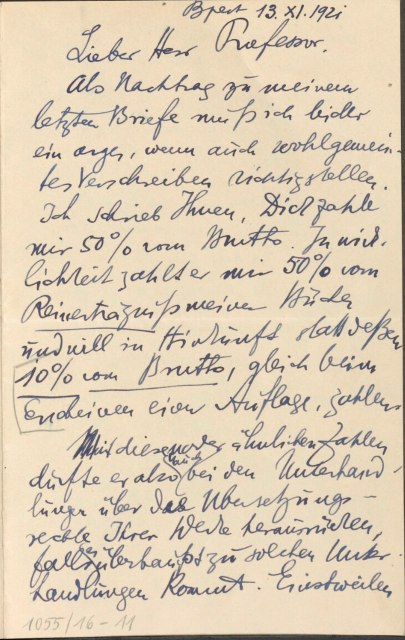 Bpest 13. XI. 1921
Lieber Herr Professor.
Als Nachtrag zu meinem
letzten Briefe muß ich leider
ein arges, wenn auch wohlgemein-
tes Verschreiben richtigstellen.
Ich schrieb Ihnen, Dick zahle
mir 50% vom Brutto. In wirk-
lichkeit zahlt er mir 50% vom
Reinerträgniß meiner Bücher
und will in Hinkunft statt deßen
10% vom Brutto, gleich beim
Erscheinen einer Auflage, zahlen.
Mit diesen oder ähnlichen Zahlen
dürfte er also auch bei den Unterhand-
lungen über das Übersetzungs-
rechte Ihrer Werke herausrücken,
falls es überhaupt zu solchen Unter-
handlungen kommt. Einstweilen
1055/16-11